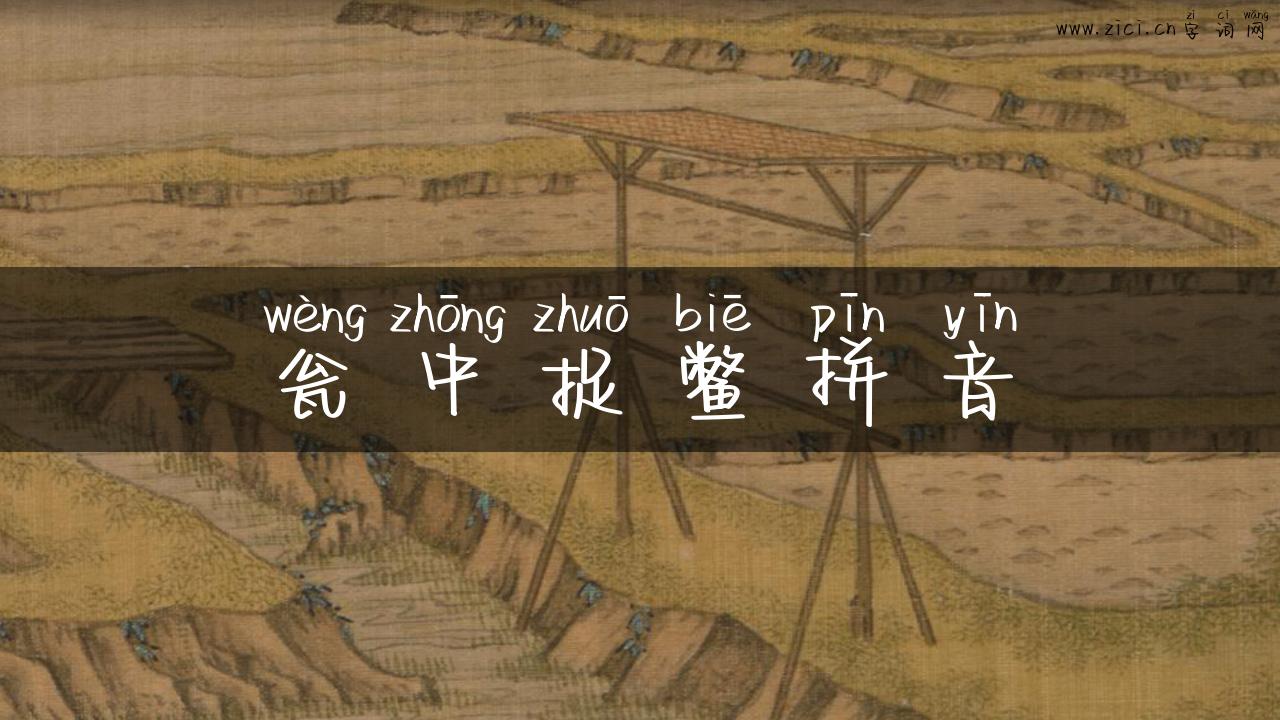 zì cí wǎng
www.zici.cn 字词网
wèng zhōng zhuō biē pīn yīn
瓮中捉鳖拼音